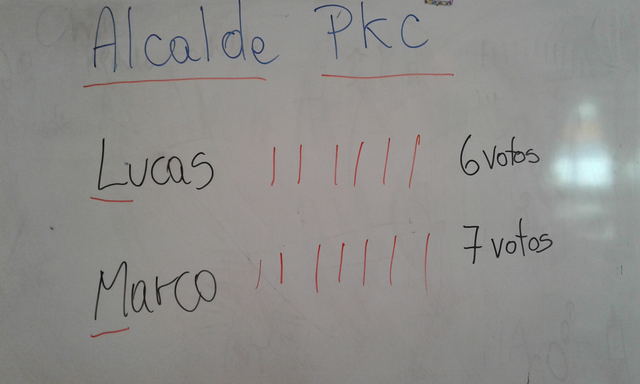 Alcalde PKC
Lucas |||||| 6 votos
Marco ||||||| 7 votos